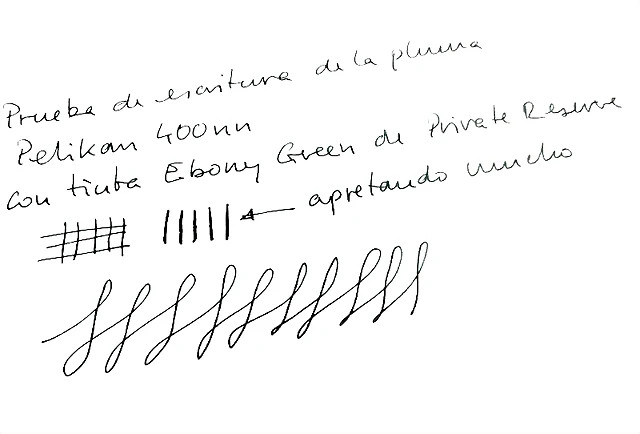 Prueba de escritura de la pluma
Pelikan 400nn
con tinta Ebony Green de Private Reserve
apretando mucho